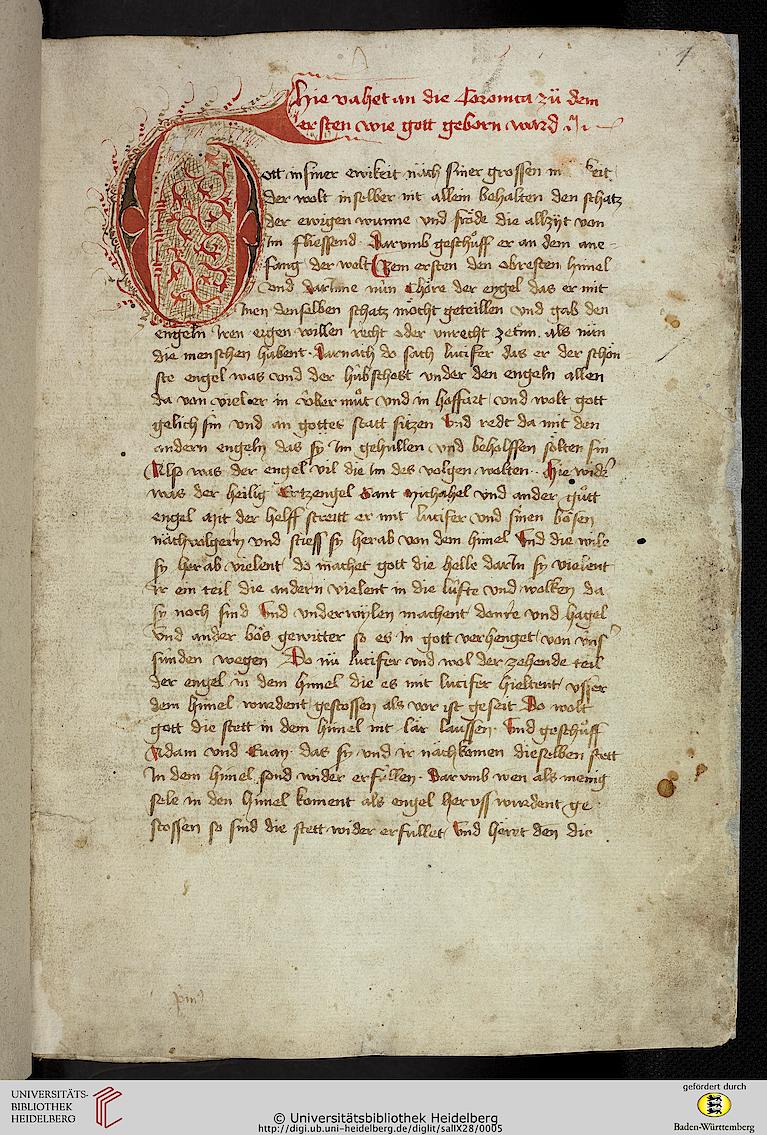 1
Hie vahet an die Coronica zů dem
ersten wie gott geborn ward
Gott in siner ewikeit nách siner grossen
der wolt in selber nit allein behalten den schatz
der ewigen wunne vnd fröde die allzyt von
Im fliessend. Darvmb geschůff er an dem ane-
fang der welt Zem ersten den obresten himel
vnd darInne nün Chöre der engel das er mit
Inen denselben schatz möcht geteillen vnd gab den
engeln Iren eigen willen recht oder vnrecht zetůn. als nün
die menschen habent. Darnach do sach lucifer das er der schön
ste engel was vnd der hübschest vnder den engeln allen
da von viel er in vbermůt vnd in hoffart vnd wolt gott
gelich sin vnd an gottes statt sitzen Vnd redt da mit den
andern engeln das sy Im gehullen vnd beholffen sölten sin
Also was der engel vil die Im des volgen wolten. Hie wider
was der heilig Ertzengel Sant Michahel vnd ander gůtt
engel Mit der helff streitt er mit lucifer vnd sinen bösen
náchvolgern vnd stiess sy herab von dem himel Vnd die wile
sy herab vielent do machet gott die helle darIn sy vielent
Ir ein teil die andern vielent in die lüfte vnd wolken da
sy noch sind Vnd vnderwylen machent donre vnd hagel
Vnd ander bös gewitter so es In gott verhenget von vnser
sünden wegen Do nü lucifer vnd wol der zehende teil
der engel in dem himel die es mit lucifer hieltent vsser
dem himel wurdent gestossen als vor ist geseit Do wolt
gott die stett in dem himel nit lär laussen Vnd geschůff
Adam vnd Euan das sy vnd ir nachkomen dieselben stett
In dem himel sond wider erfüllen. Darvmb wen als menig
sele in den himel koment als engel her vss wurdent ge
stossen so sind die stett wider erfüllet Vnd heret den die
UNIVERSITÄTS-
BIBLIOTHEK
HEIDELBERG
© Universitätsbibliothek Heidelberg
http://digi.ub.uni-heidelberg.de/diglit/salIX28/0005
gefördert durch
Baden-Württemberg